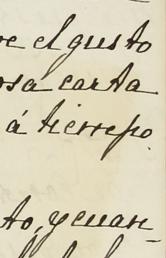 e el gusto
osa carta
á tiempo.
to, y cuan-